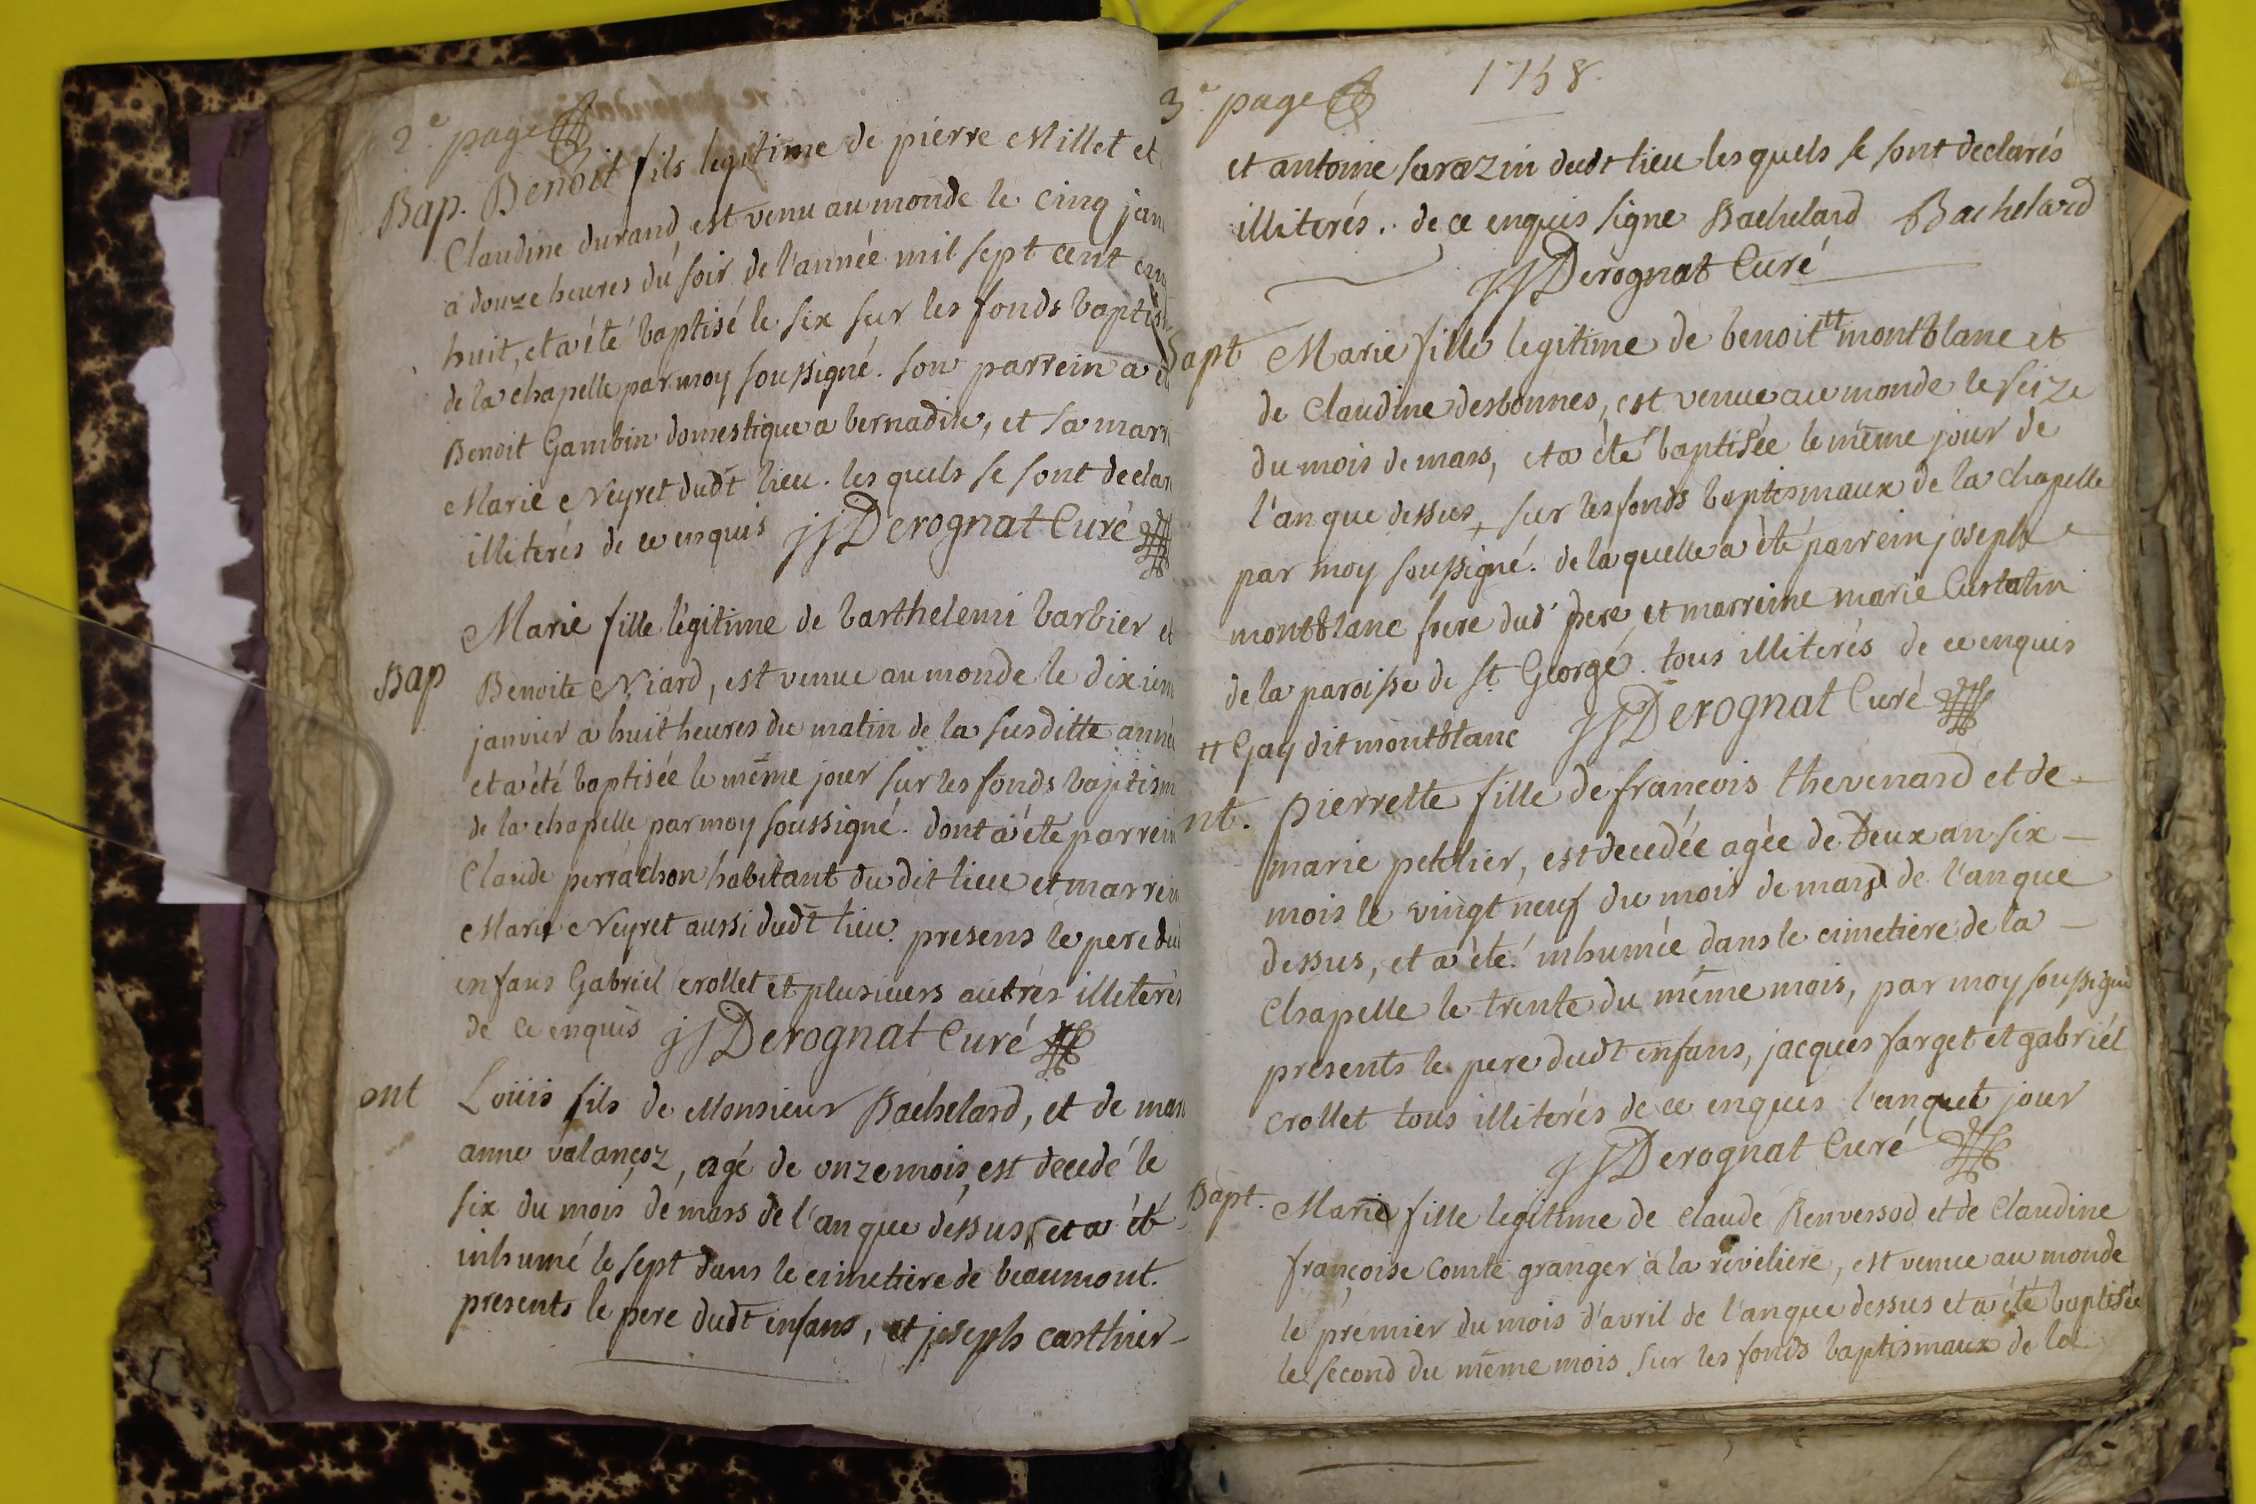 2e page
Bap. Benoit fils legitime de pierre Millet et
Claudine durand est venu au monde le cinq jan
a douze heures du soir de l'année mil sept cent cin
huit, et a été baptisé le six sur les fonds baptis
de la chapelle par moy soussigné. son parrein a é
Benoit Gambin domestique a bernadin, et sa marr
Marie Neyret dudt lieu. les quels se sont declar
illiterés de ce enquis jJ Derognat Curé
Marie fille légitime de barthelemi barbier et
Bap Benoite Niard, est venue au monde le dixiem
janvier a huit heures du matin de la susditte anné
et a été baptisée le même jour sur les fonds baptism
de la chapelle par moy soussigné. dont a été parrein
Claude perrachon habitant du dit lieu et marrein
Marie Neyret aussi dudt lieu. presens le pere dud
enfans Gabriel crollet et plusieurs autres illiterés
de ce enquis jJ Derognat Curé
ent Loüis fils de Monsieur Bachelard, et de mari
anne valançoz, agé de onze mois, est decedé le
six du mois de mars de l'an que dessus, et a été
inhumé le sept dans le cimetiere de beaumont.
presents le pere dudt enfans, et joseph casthier
3e page 1758.
et antoine sarazin dudt lieu lesquels se sont declarés
illiterés. de ce enquis signe Bachelard Bachelard
jJ Derognat Curé
Bapt Marie fille legitime de benoit tt montblanc et
de Claudine desbonnes, est venue au monde le seize
du mois de mars, et a été baptisée le même jour de
l'an que dessus, sur les fonds baptismaux de la chapelle
par moy soussigné. de la quelle a été parrein joseph
montblanc frere dud' pere et marreine marie Curtatin
de la paroisse de St. George. tous illiterés de ce enquis
tt Gay dit montblanc jJ Derognat Curé
nt. pierrette fille de francois thevenard et de
marie petelier, est decedée agée de Deux an six
mois le vingt neuf du mois de mars de l'an que
dessus, et a été inhumée dans le cimetiere de la
Chapelle le trente du même mois, par moy soussigné
presents le pere dudt enfans, jacques farget et gabriél
crollet tous illiterés de ce enquis l'an que jour
jJ Derognat Curé
Bapt. Marie fille legitime de claude Renversod et de Claudine
françoise Comte granger à la riveliere, est venue au monde
le premier du mois d'avril de l'an que dessus et a été baptisée
le second du même mois sur les fonds baptismaux de la